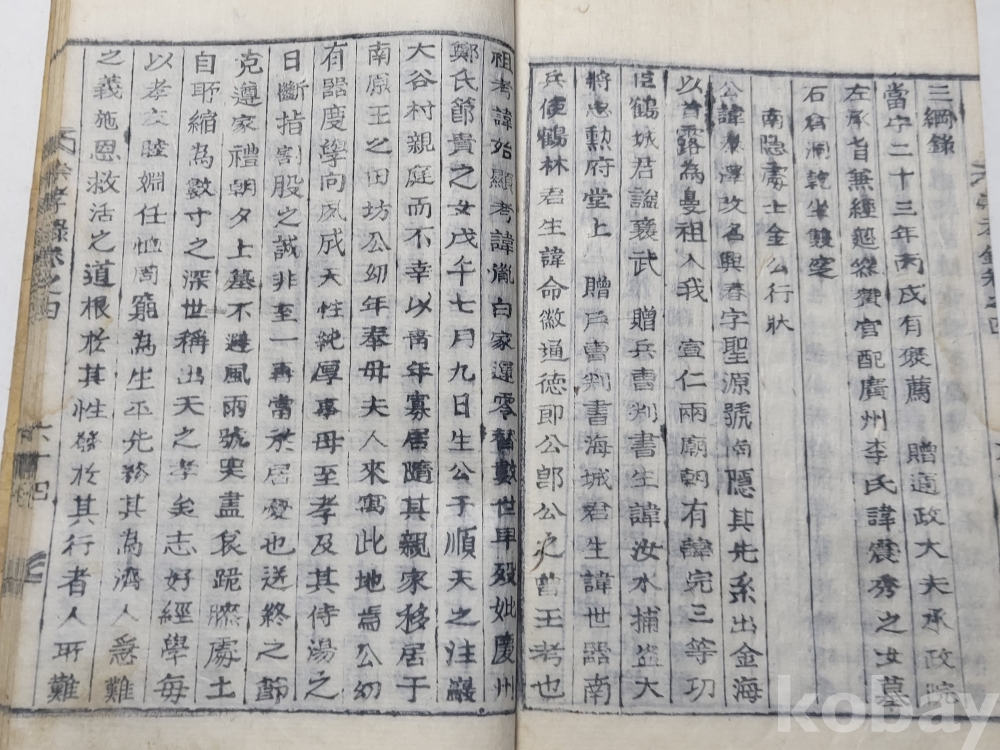 三綱錄
當宁二十三年丙戌有褒薦 贈通政大夫承政院
左承旨兼經筵參贊官配廣州李氏諱震秀之女墓
石倉洞乾坐雙窆
南隱處士金公行狀
公諱 澤改名興春字聖源號南隱其先系出金海
以首露為曼祖入我 宣仁兩廟朝有諱完三等功
臣鶴城君謚襄武 贈兵曹判書生諱汝水捕盜大
將忠勲府堂上 贈戶曹判書海城君生諱世器南
兵使鶴林君生諱命徽通德郎公 公 曾王考也
祖考諱始顯考諱胤白家運零替數世早殁妣慶州
鄭氏節貴之女戊午七月九日生公于順天之注巖
大谷村親庭而不幸以靑年寡居隨其親家移居于
南原王之田坊公幼年奉母夫人來寓此地焉公幼
有器度學向夙成天性純厚事母至孝及其侍湯之
日斷指割股之誠非至一再當於居憂也送終之節
克遵家禮朝夕上墓不避風雨號哭盡哀跪膝處土
自耳縮為數寸之深世稱出天之孝矣志好經學每
以孝友睦婣任恤周窮為生平先務其為濟人愚難
之義施恩救活之道根於其性發於其行者人所難
錄卷之四
kobay